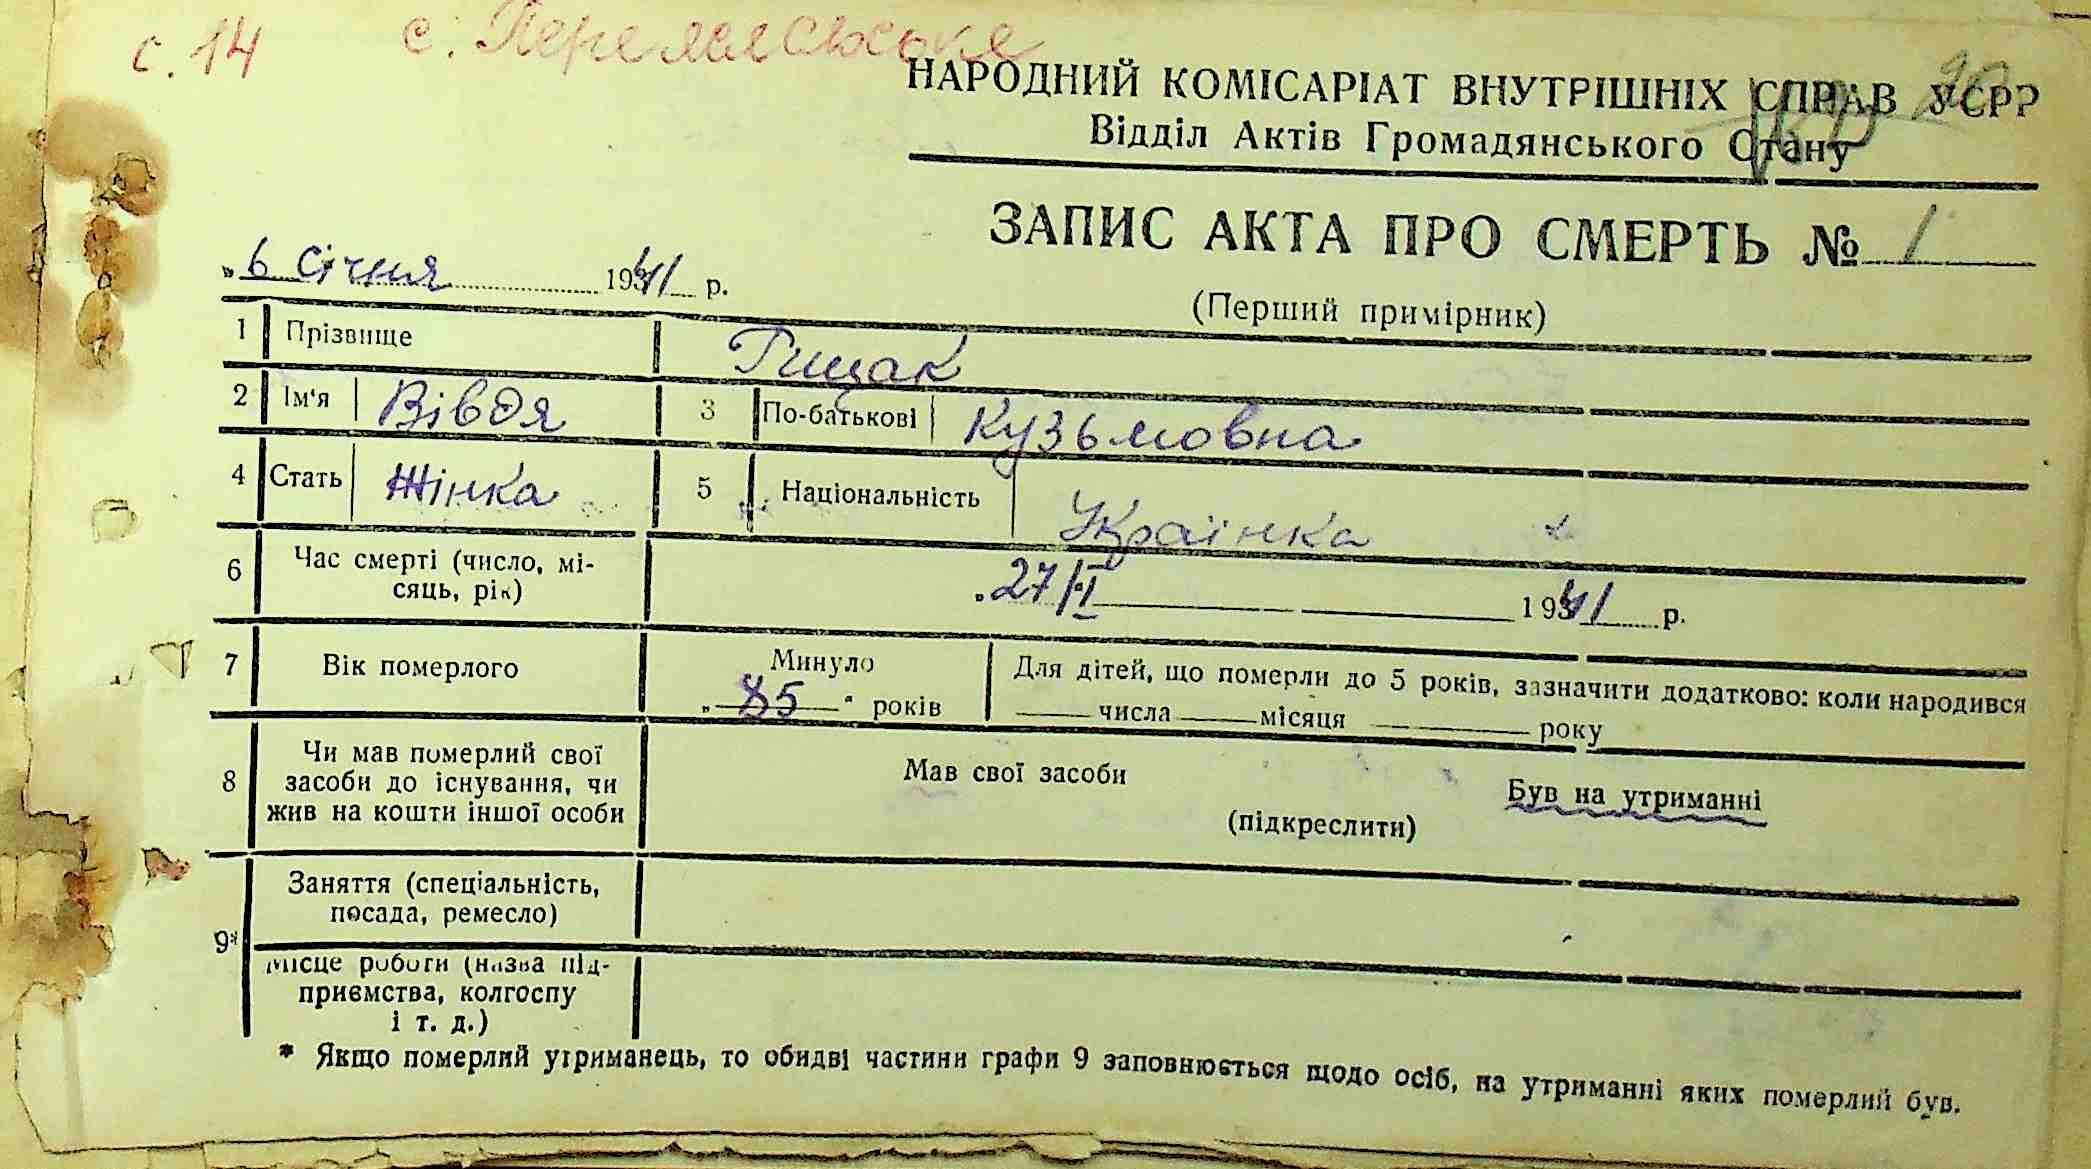 с. 14
НАРОДНИЙ КОМІСАРІАТ ВНУТРІШНІХ СПРАВ УСРР
Відділ Актів Громадянського Стану
ЗАПИС АКТА ПРО СМЕРТЬ № 1
„6 січня 1941 р.
(Перший примірник)
1 Прізвище Гищак
2 Ім'я Вівдя 3 По-батькові Кузьмовна
4 Стать Жінка 5 Національність Українка
6 Час смерті (число, мі-
сяць, рік) „27/I 1941 р.
7 Вік померлого Минуло „85" років
Для дітей, що померли до 5 років, зазначити додатково: коли народився
числа місяця року
8 Чи мав померлий свої
засоби до існування, чи
жив на кошти іншої особи
Мав свої засоби Був на утриманні
(підкреслити)
9* Заняття (спеціальність,
посада, ремесло)
Місце роботи (назва під-
приємства, колгоспу
і т. д.)
* Якщо померлий утриманець, то обидві частини графи 9 заповнюється щодо осіб, на утриманні яких померлий був.